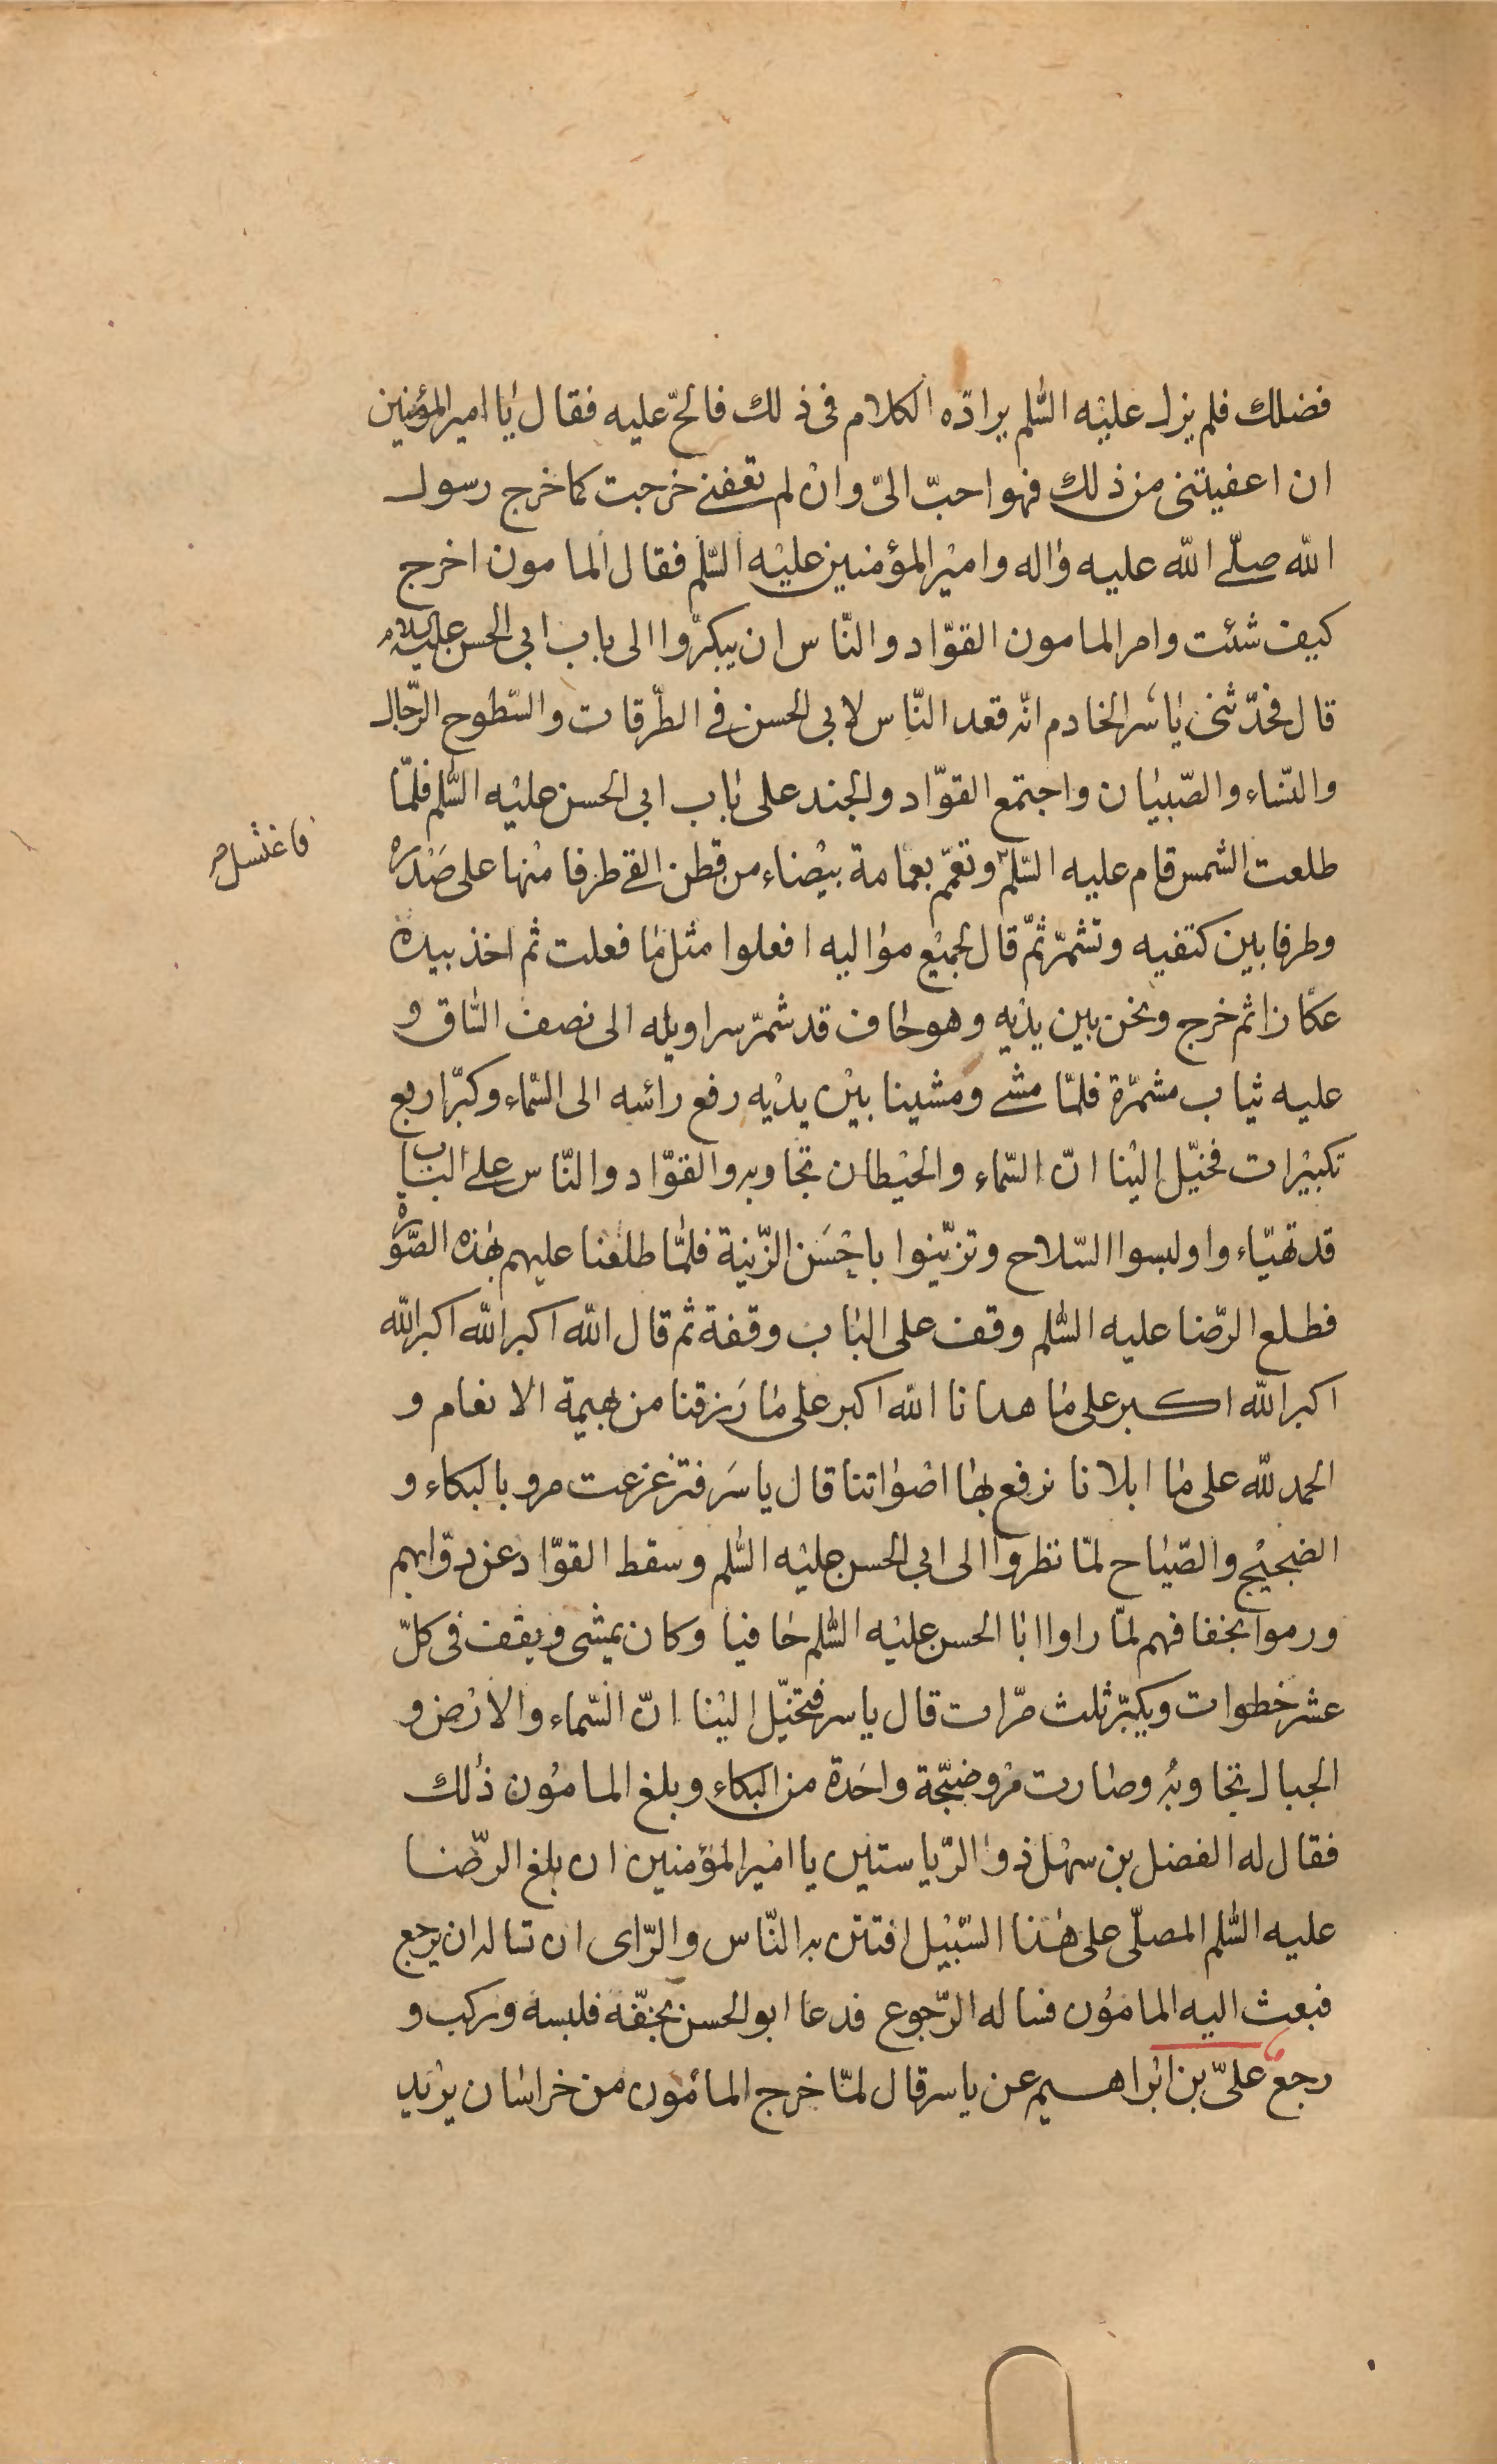 فضلك فلم يزل عليه السّلم يرادّه الكلام فى ذلك فالحّ عليه فقال يا امير المؤمنين
ان اعفيتنى من ذلك فهو احبّ الىّ وان لم تعفنے خرجت كما خرج رسول
الله صلّے الله عليه واله وامير المؤمنين عليه السّلم فقال المامون اخرج
كيف شئت وامر المامون القوّاد والنّاس ان يبكرّوا الى باب ابى الحسن عليه السلام
قال فحدّثنى ياسر الخادم انّه قعد النّاس لابى الحسن فے الطّرقات والسّطوح الرّجال
والنّساء والصّبيان واجتمع القوّاد والجند على باب ابى الحسن عليه السّلم فلمّا
طلعت الشمس قام عليه السّلم وتعمّم بعمامة بيضاء من قطن القے طرفا منها على صَدره
فاغتسل صح
وطرفا بين كتفيه وتشمّر ثمّ قال لجميع مواليه افعلوا مثل ما فعلت ثم اخذ بيده
عكّازا ثم خرج ونحن بين يديه وهو حاف قد شمّر سراويله الى نصف السّاق و
عليه ثياب مشمّرة فلمّا مشے ومشينا بين يديه رفع رائسه الى السّماء وكبّر اربع
تكبيرات فخيّل الينا انّ السّماء والحيطان تجاوبه والقوّاد والنّاس على الباب
قد تهيّاءوا ولبسوا السّلاح وتزيّنوا باحْسَن الزّينة فلمّا طلعنا عليهم بهذه الصّورة
فطلع الرّضا عليه السّلم وقف على الباب وقفة ثم قال الله اكبر الله اكبر الله
اكبر الله اكبر على ما هدانا الله اكبر على ما رَزقنا من بهيمة الانعام و
الحمد لله على ما ابلانا نرفع بها اصواتنا قال ياسَر فتزعزعت مرو بالبكاء و
الضجيج والصّياح لمّا نظروا الى ابى الحسن عليه السّلم وسقط القوّاد عن دوّابهم
ورموا بخفافهم لمّا راوا ابا الحسن عليه السّلم حافيا وكان يمشى ويقف فى كلّ
عشر خطوات ويكبّر ثلث مرّات قال ياسر فتخيّل الينا انّ السّماء والارض و
الجبال تجاوبه وصارت مرو ضجّة واحدة من البكاء وبلغ المامون ذلك
فقال له الفضل بن سهل ذو الرّياستين يا امير المؤمنين ان بلغ الرّضا
عليه السّلم المصلّى على هذا السّبيل افتتن به النّاس والرّاى ان تساله ان يرجع
فبعث اليه المامون فساله الرّجوع فدعا ابو الحسن بخفّه فلبسه وركب و
رجع علىّ بن ابراهيم عن ياسر قال لمّا خرج المامون من خراسان يريد